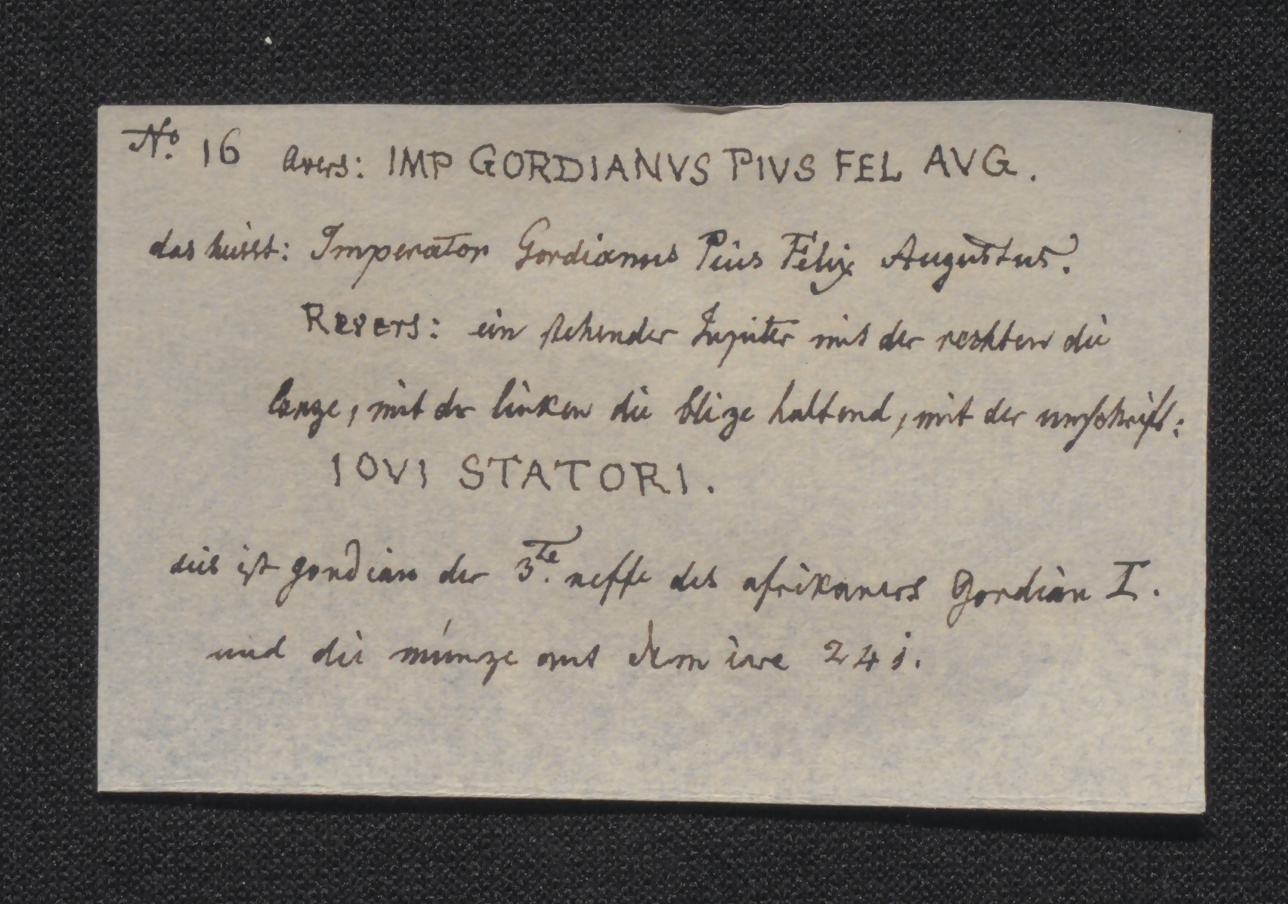 No. 16 Avers: IMP GORDIANVS PIVS FEL AVG.
das heisst: Imperator Gordianus Pius Felix Augustus.
Revers: ein stehender Jupiter mit der rechten die
lanze, mit der linken die blize haltend, mit der umschrift:
IOVI STATORI.
dis ist gordian der 3te. neffe des afrikaners Gordian I.
und die münze aus dem jare 241.